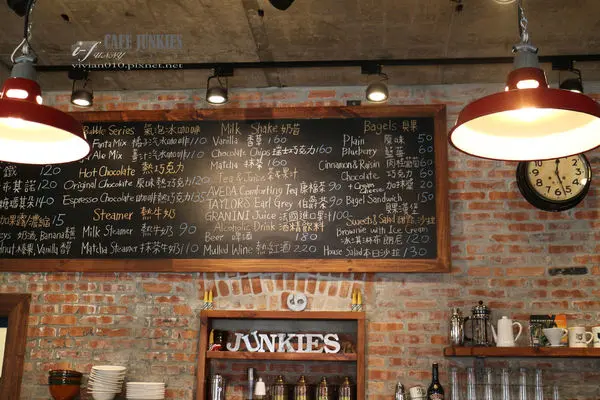 CAFE JUNKIES
vivian010.pixnet.net
Bubble Series 氣泡冰咖啡
Fanta Mix 橘子汽水咖啡110
Ale Mix 薑汁汽水咖啡110
Hot Chocolate 熱巧克力
Original Chocolate 原味熱巧克力 120
Espresso Chocolate
Steamer 熱牛奶
Milk Steamer 熱牛奶 90
Matcha Steamer 抹茶牛奶 110
Milk Shake 奶昔
Vanilla 香草 160
Chocolate Chips 巧克力 160
Matcha 抹茶 160
Tea & Juice 茶&果汁
AVEDA Comforting Tea
TAYLORS Earl Grey 伯爵茶
GRANINI Juice 法國進口果汁 100
Alcoholic Drink 酒精飲料
Beer 啤酒 180
Mulled Wine 熱紅酒 220
Bagels 貝果
Plain 原味 50
Blueberry 藍莓 60
Cinnamon & Raisin 肉桂葡萄 60
Chocolate 巧克力 60
+ Cream 加抹醬 20
Bagel Sandwich 150
貝果漢堡
Sweets & Salad 甜點,沙拉
Brownie with Ice Cream
冰淇淋布朗尼 120
House Salad 本日沙拉 130
JUNKIES